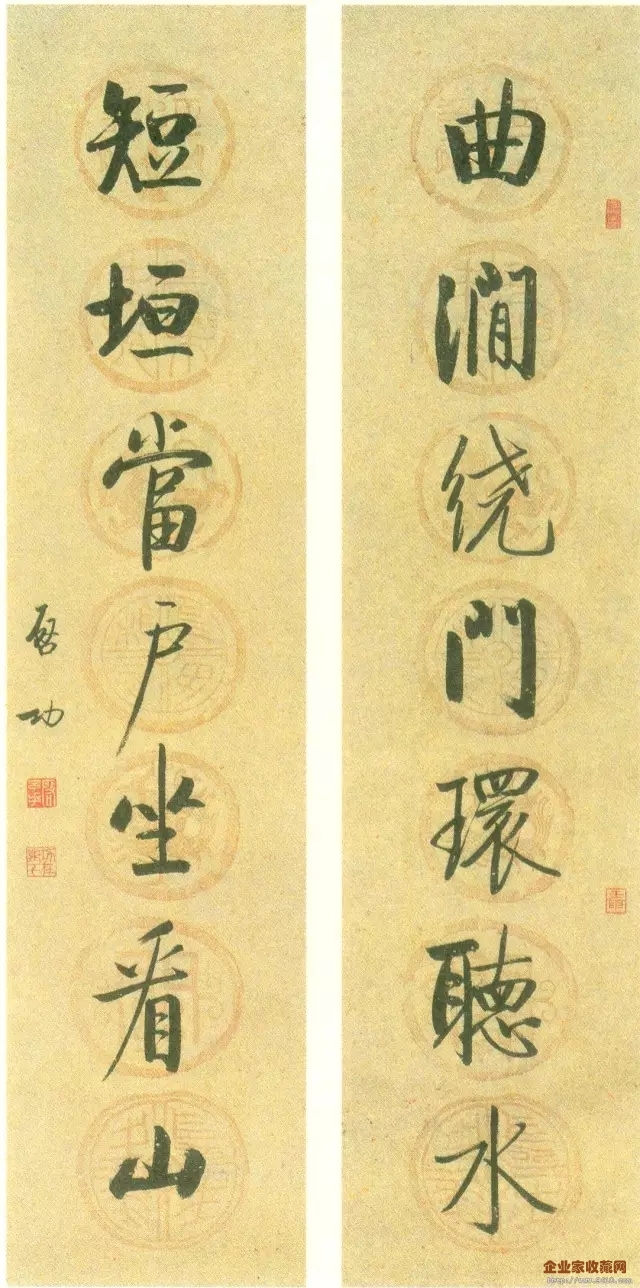 曲澗绕門環聽水
短垣當户坐看山
启功
企业家收藏网